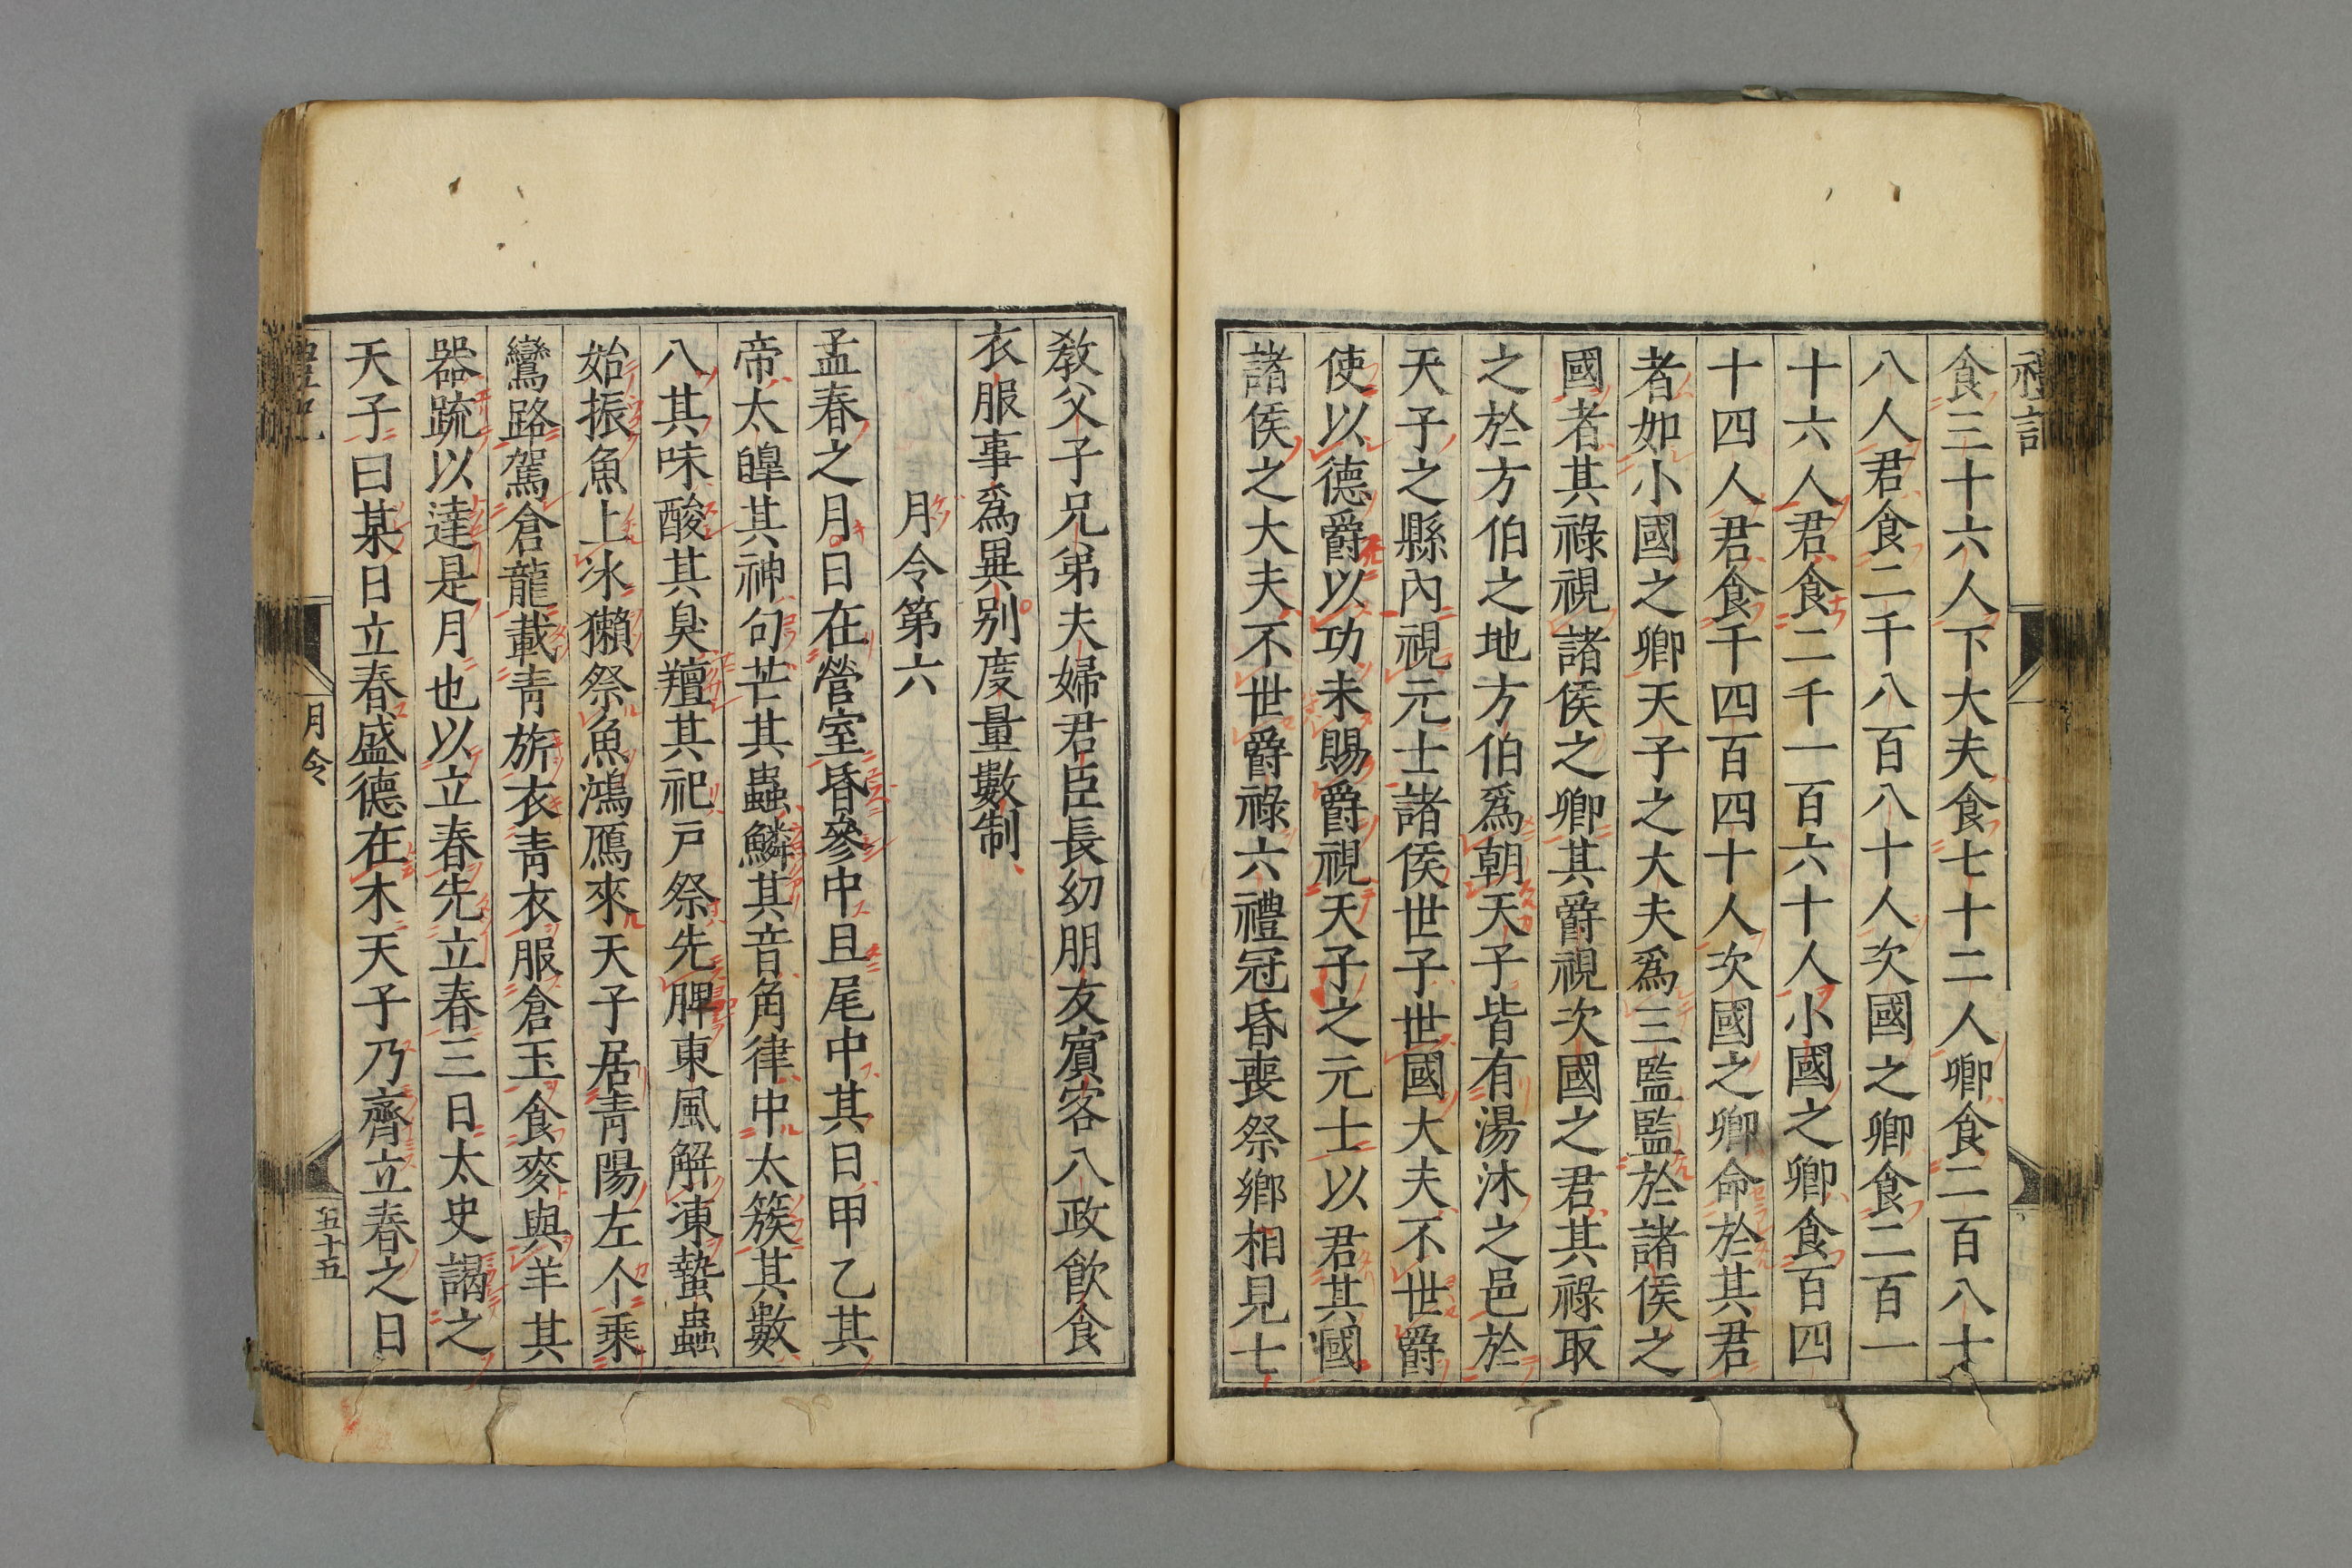 禮記
食三十六人下大夫食七十二人卿食二百八十
八人君食二千八百八十人次國之卿食二百一
十六人君食二千一百六十人小國之卿食百四
十四人君食千四百四十人次國之卿命於其君
者如小國之卿天子之大夫爲三監監於諸侯之
國者其祿視諸侯之卿其爵視次國之君其祿取
之於方伯之地方伯爲朝天子皆有湯沐之邑於
天子之縣內視元士諸侯世子世國大夫不世爵
使以德爵以功未賜爵視天子之元士以君其國
諸侯之大夫不世爵祿六禮冠昏喪祭鄉相見七
敎父子兄弟夫婦君臣長幼朋友賓客八政飮食
衣服事爲異別度量數制
月令第六
孟春之月日在營室昏參中旦尾中其日甲乙其
帝太皥其神句芒其蟲鱗其音角律中太簇其數
八其味酸其臭羶其祀戶祭先脾東風解凍蟄蟲
始振魚上冰獺祭魚鴻鴈來天子居靑陽左个乘
鸞路駕倉龍載靑旂衣靑衣服倉玉食麥與羊其
器疏以達是月也以立春先立春三日太史謁之
天子曰某日立春盛德在木天子乃齊立春之日
禮記 月令 五十五